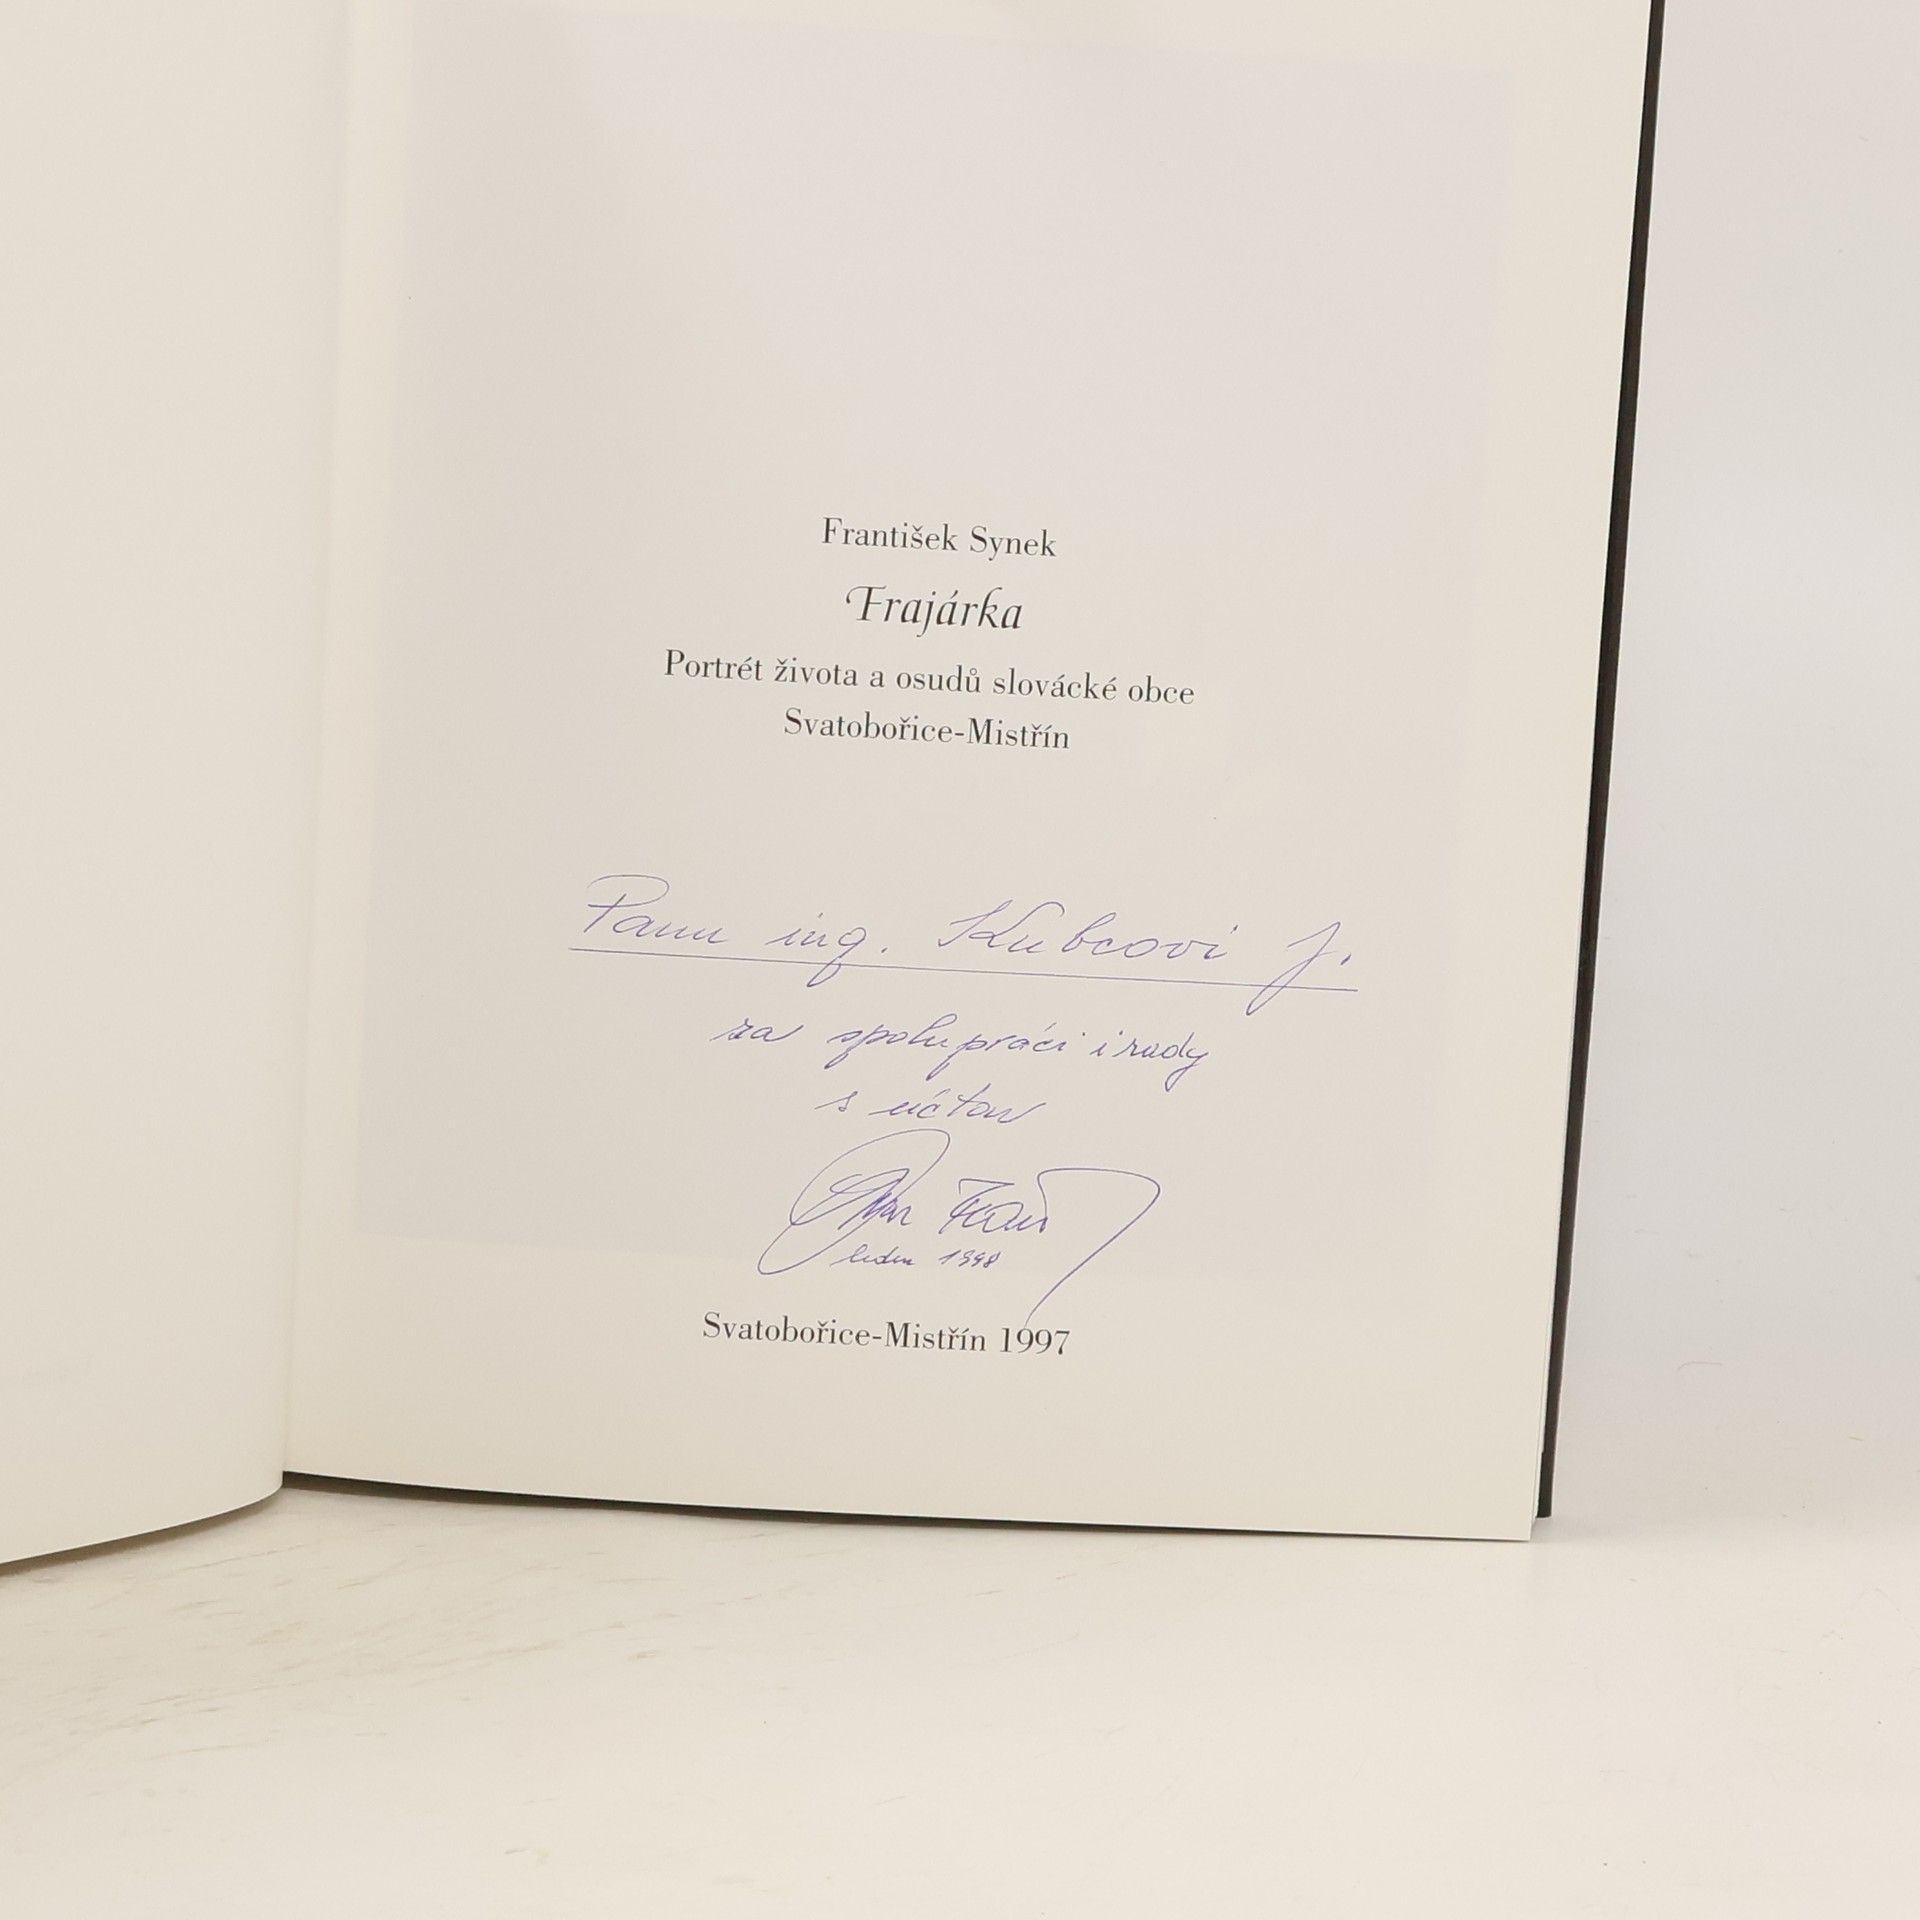 František Synek
Frajárka
Portrét života a osudů slovácké obce
Svatobořice-Mistřín
Panu ing. Kubcovi J.
za spolupráci i rady
s úctou
leden 1998
Svatobořice-Mistřín 1997